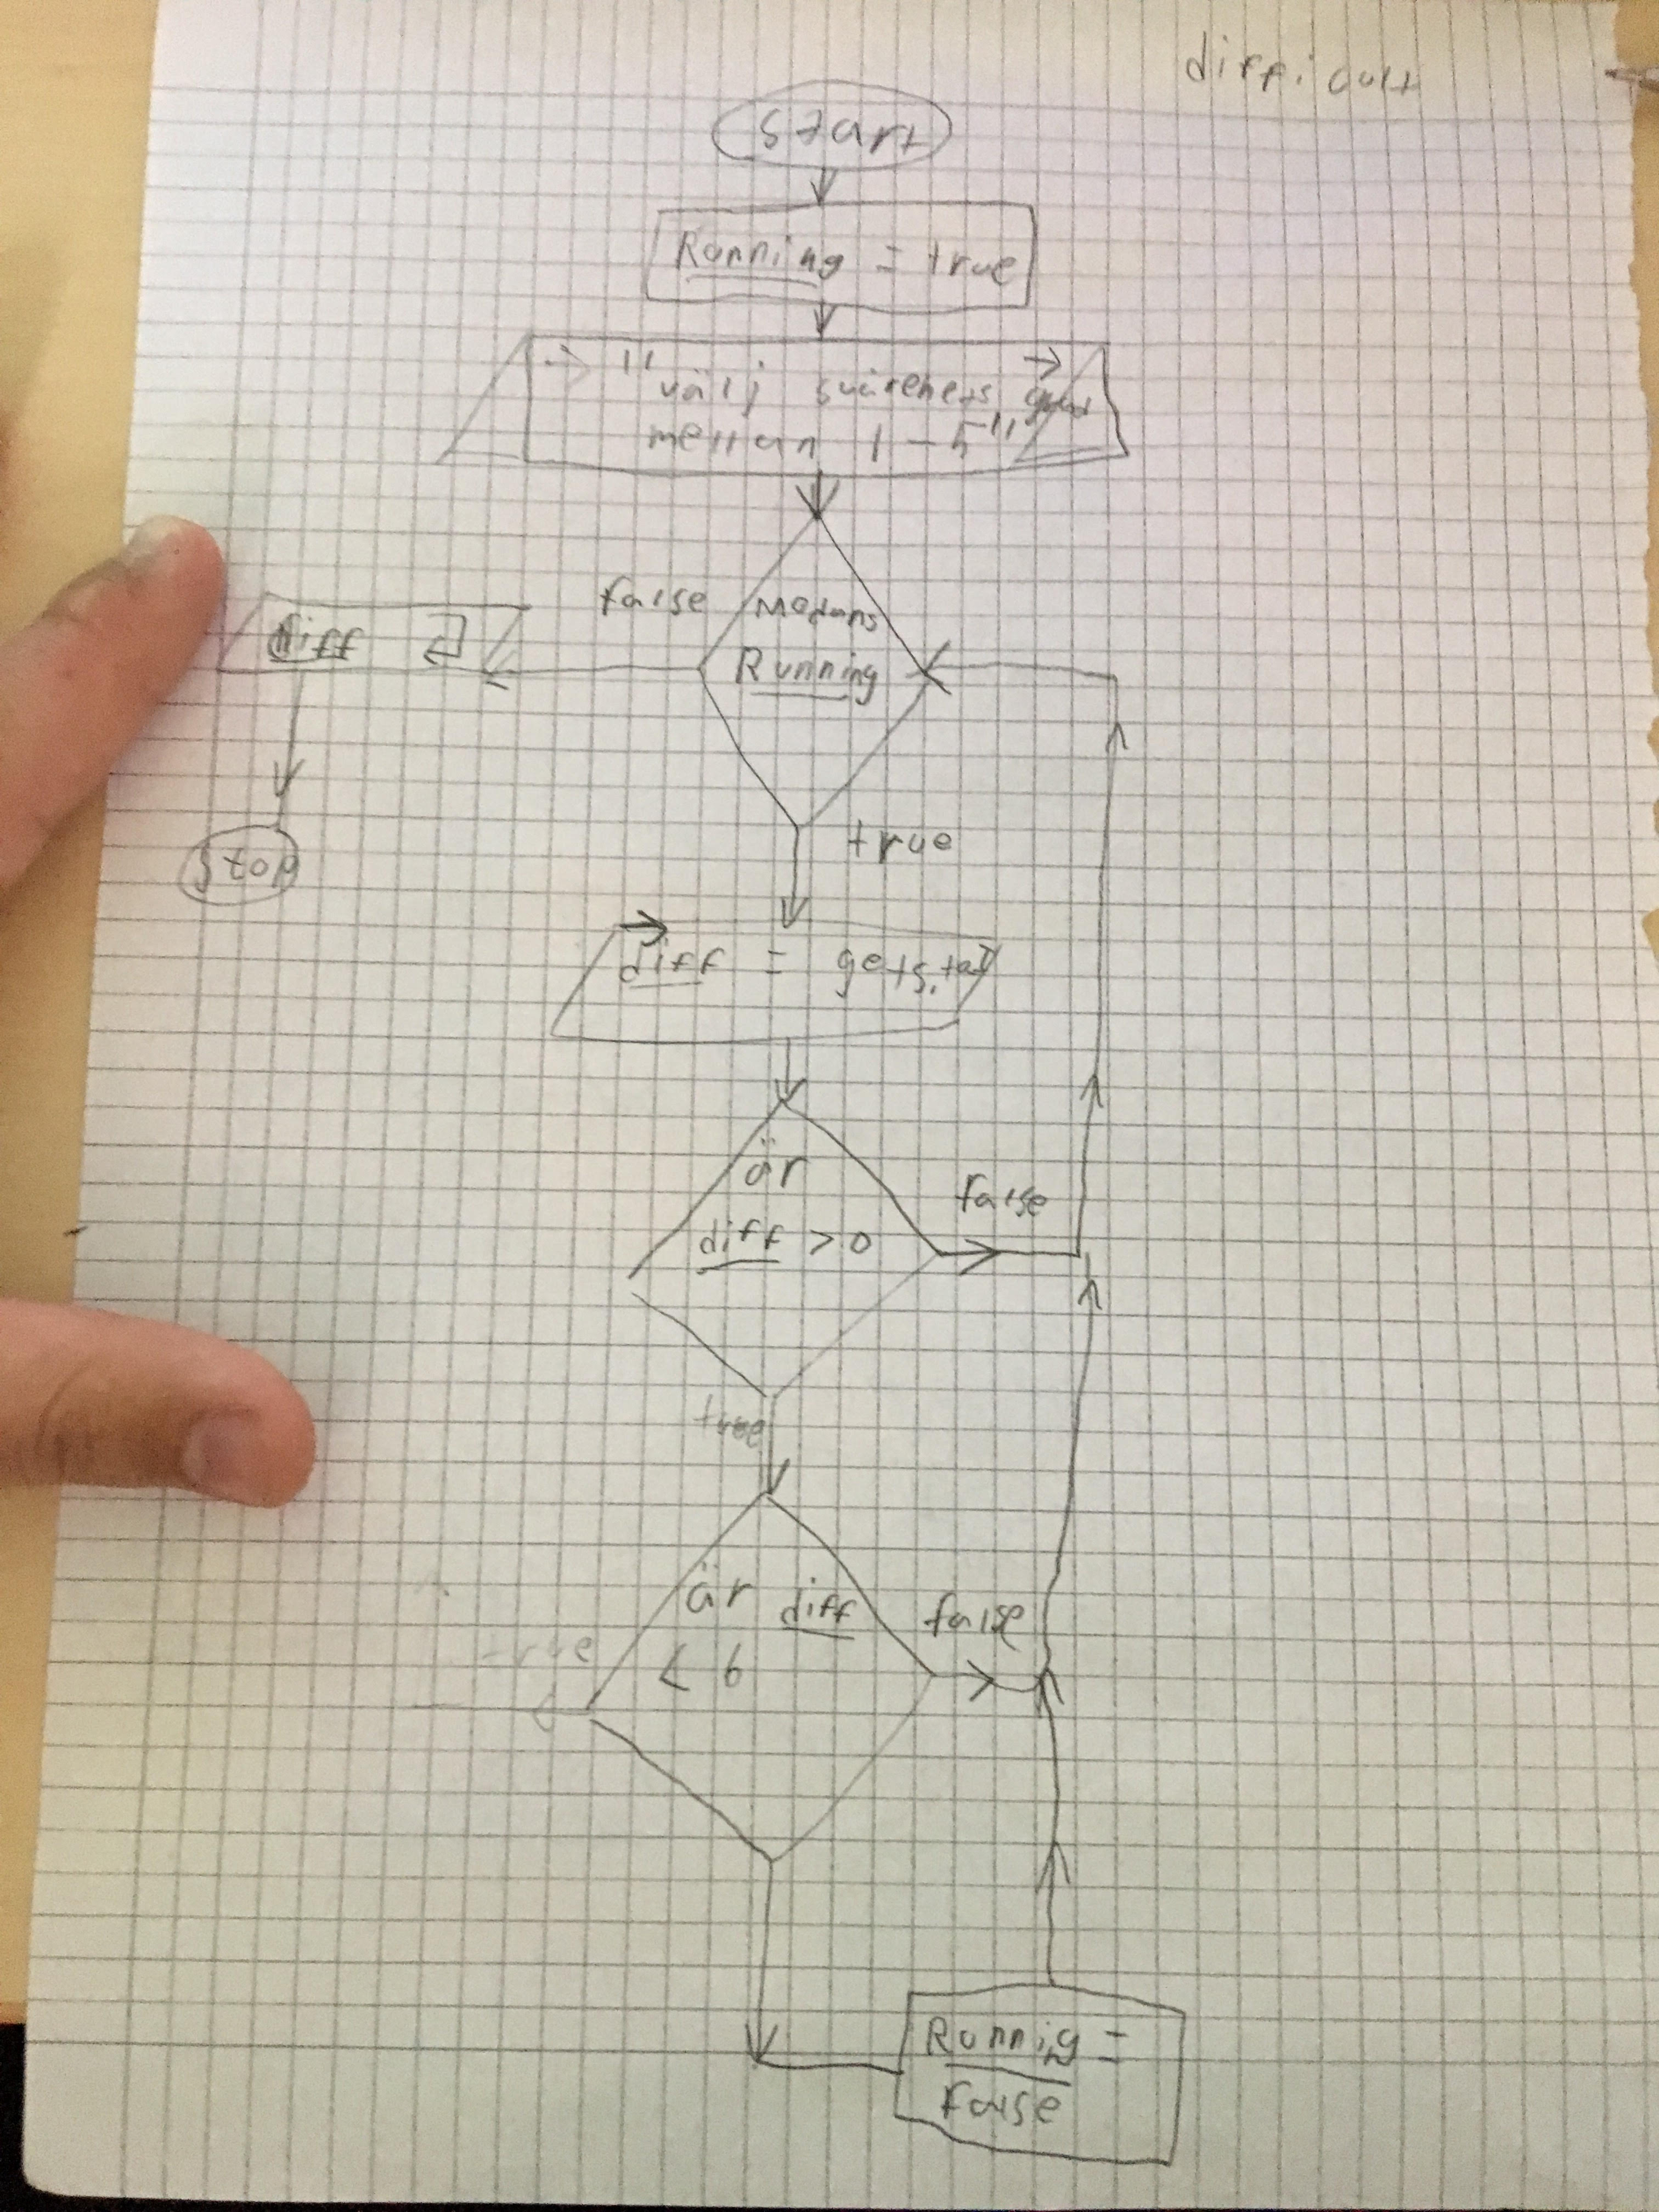 difficult
start
Running = true
"välj svårehets grad
mellan 1-5"
false
Medans
Running
diff
true
stop
diff = gets.to_i
är
diff > 0
false
true
är diff
< 6
false
true
Runnig =
false